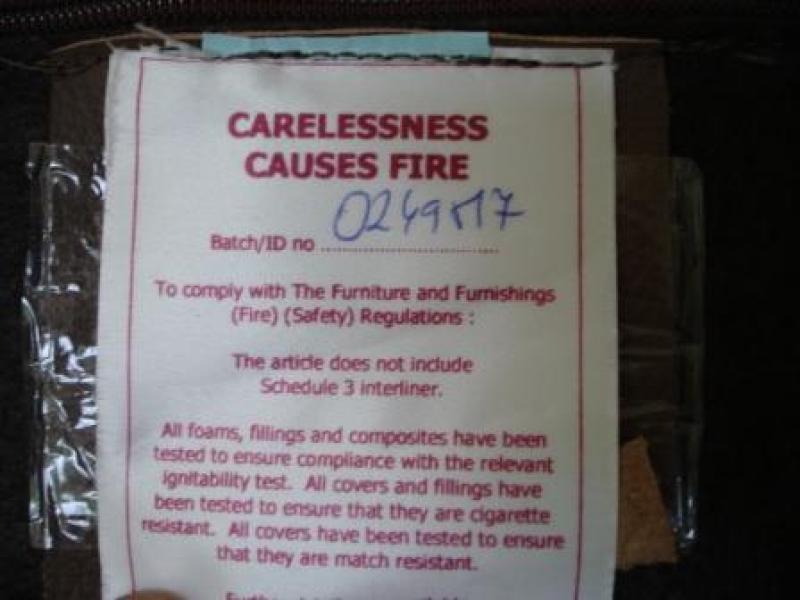 CARELESSNESS
CAUSES FIRE
Batch/ID no
To comply with The Furniture and Furnishings
(Fire) (Safety) Regulations :
The article does not include
Schedule 3 interliner.
All foams, fillings and composites have been
tested to ensure compliance with the relevant
ignitability test. All covers and fillings have
been tested to ensure that they are cigarette
resistant. All covers have been tested to ensure
that they are match resistant.